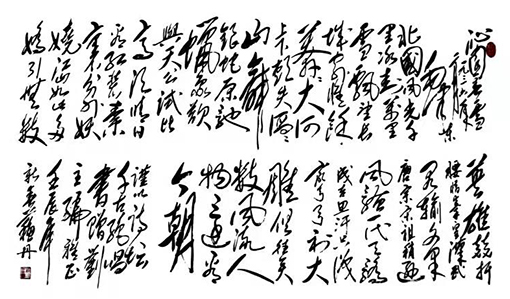 沁园春雪
毛泽东
北国风光千
里冰封万里
雪飘望长
城内外惟馀
莽莽大河
上下顿失滔滔
山舞
银蛇原驰
蜡象欲
与天公试比
高须晴日
看红装素
裹分外妖
娆江山如此多
娇引无数
英雄竞折
腰惜秦皇汉武
略输文采
唐宗宋祖稍逊
风骚一代天骄
成吉思汗只识
弯弓射大
雕俱往矣
数风流人
物还看
今朝
谨以诗坛
千古绝唱
书赠刘
主编雅正
壬辰年